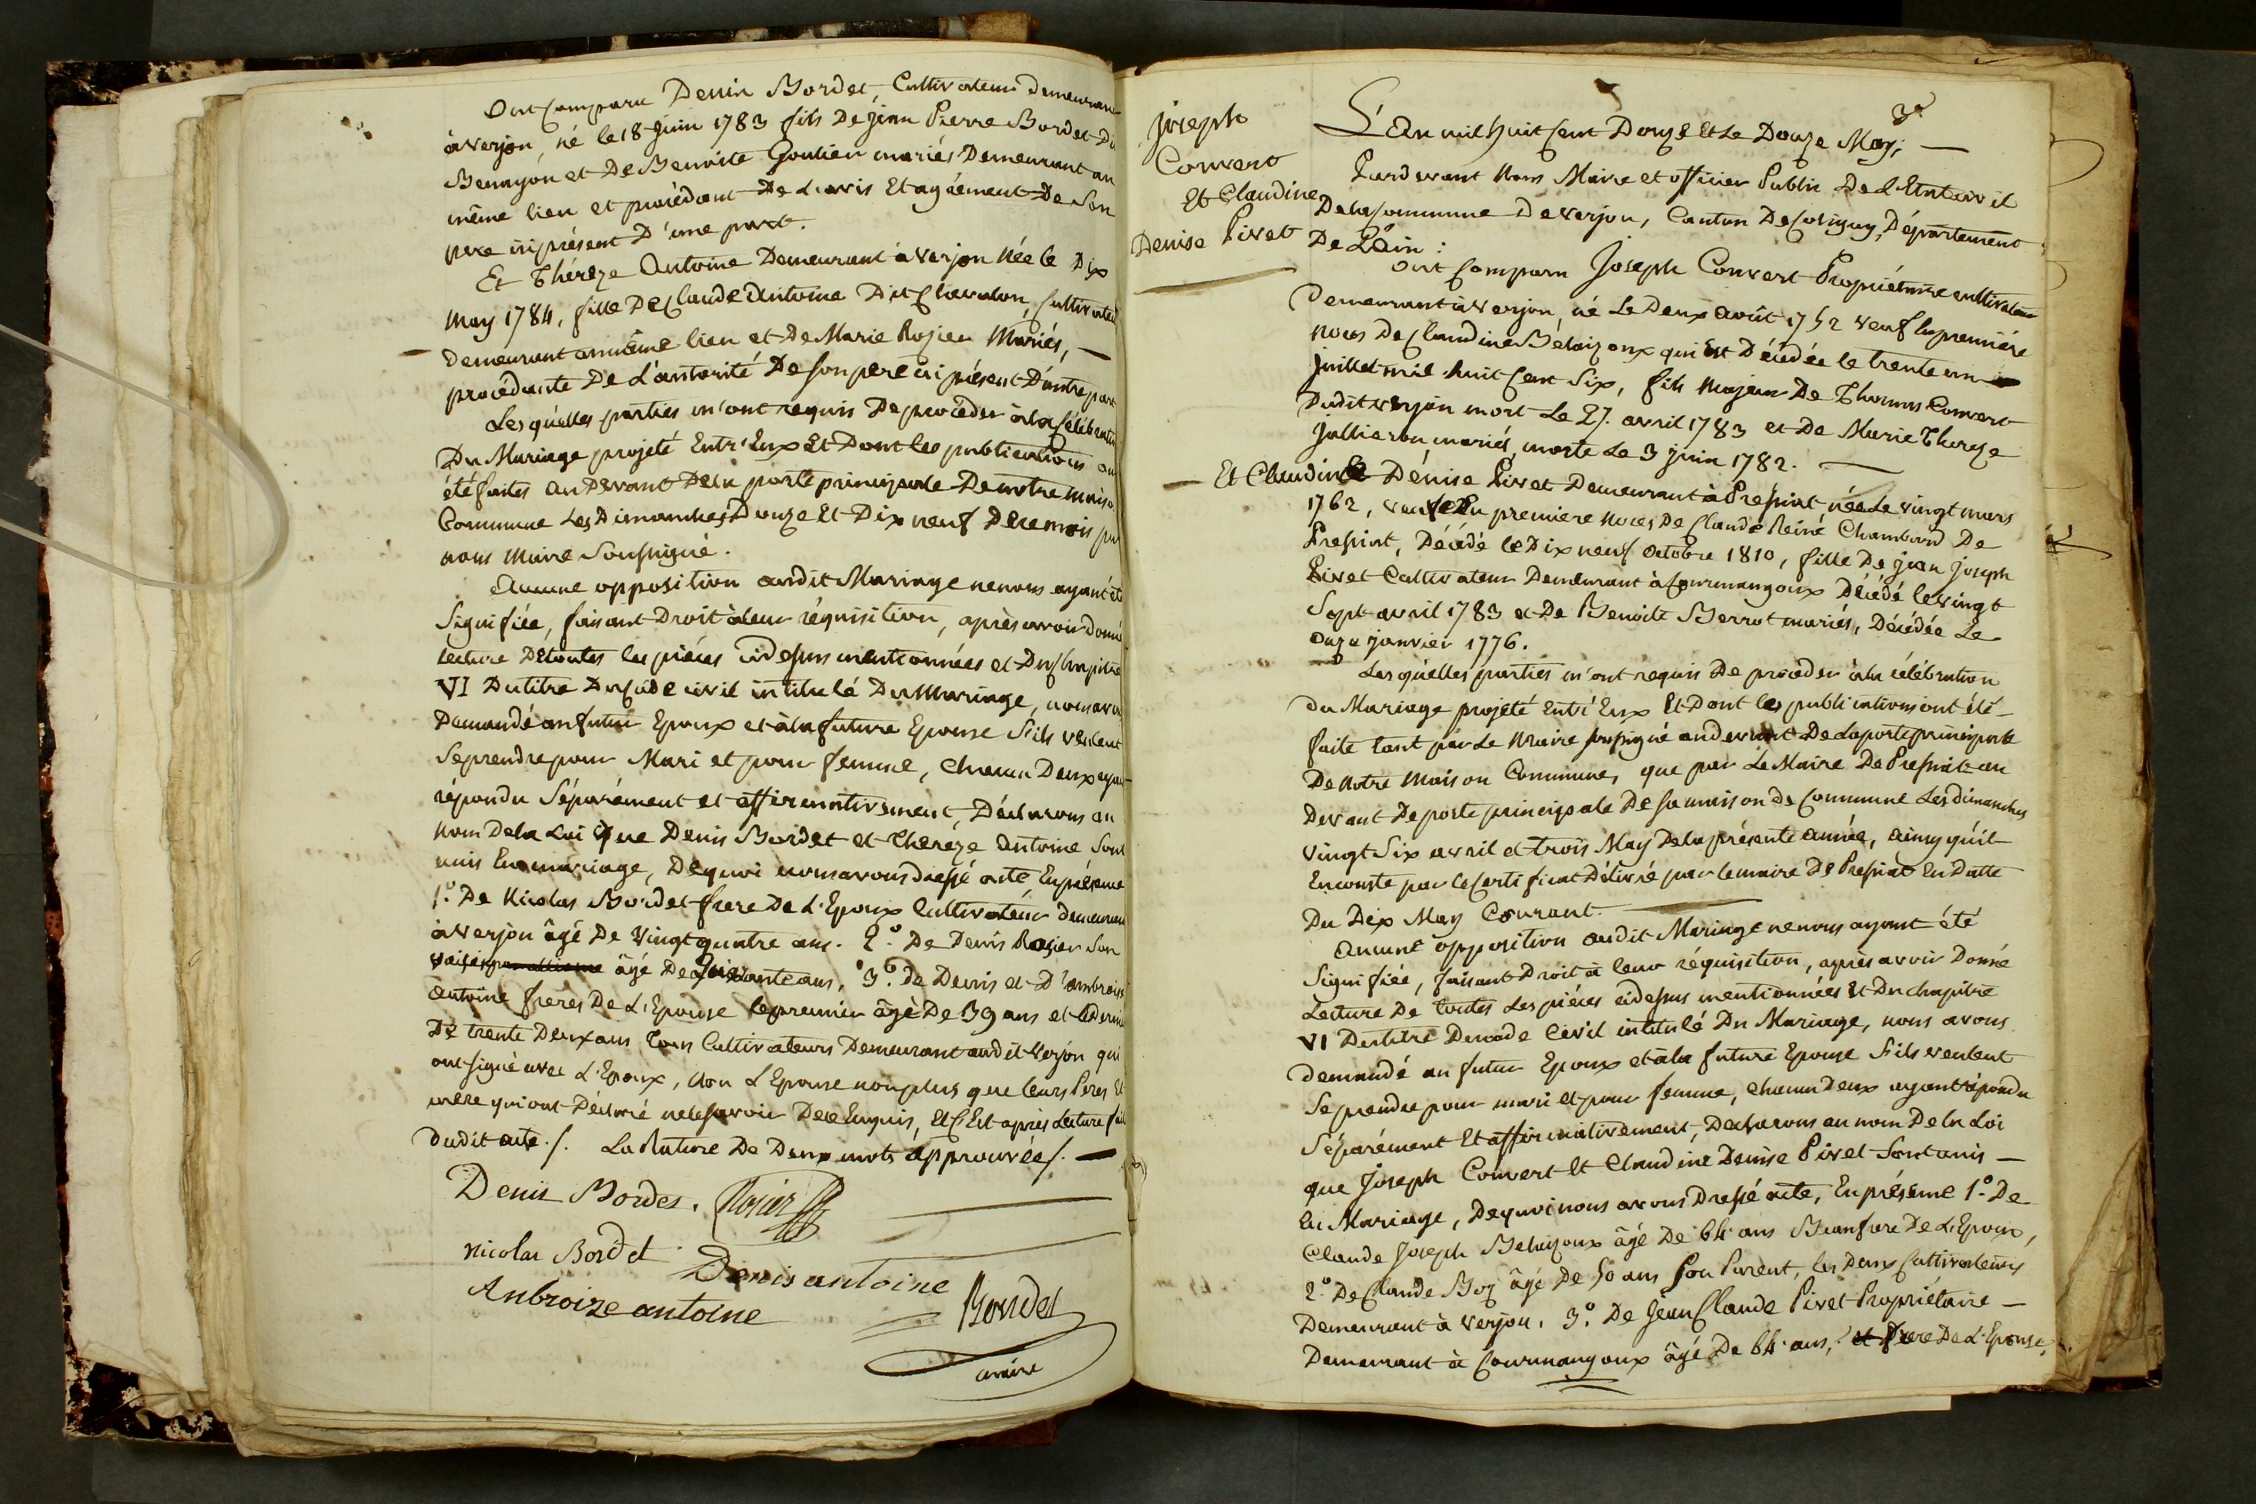 Ont Comparu Denis Bordet, Cultivateur demeurant
à verjon, né le 18 Juin 1783 fils De jean Pierre Bordet Du
et De Benoite Goutier mariés Demeurant au
même lieu et procédant De L'avis Et agréement De Son
pere ici présent D'une part.
Et Théreze Antoine Demeurant à verjon Née le Dix
May 1784, fille De Claude Antoine Dit Chevalon, Cultivateur
demeurant au même lieu et De Marie Rozier Mariés, —
procédante De L'autorité De Son pere ici présent D'autre part
Les quelles parties m'ont requis De procéder à la Célébration
Du Mariage projeté Entr'Eux Et Dont les publications ont
été faites au Devant De la porte principale De notre maison
Commune Les Dimanches Douze Et Dix neuf De ce mois par
nous Maire Soussigné.
Aucune opposition audit Mariage ne nous ayant été
Signifiée, faisant Droit à leur réquisition, après avoir donné
lecture De toutes les piéces cidessus mentionnées et Du Chapitre
VI Du titre Du Code civil intitulé Du Mariage, nous avons
Demandé au futur Epoux et à la future Epouse S'ils veulent
Se prendre pour Mari et pour femme, chacun Deux ayant
répondu Séparément et affirmativement, Déclarons au
Nom De la Loi Que Denis Bordet et Theréze Antoine Sont
unis En mariage, De quoi nous avons dressé acte, En présence
1.° De Nicolas Bordet frere De L'Epoux Cultivateur demeurant
à verjon âgé De Vingt quatre ans. 2.° De Denis Rozier Son
voisin âgé De ans, 3.° de Denis et D'ambroise
Antoine freres De L'Epouse le premier âgé De 39 ans et le dernier
De trente Deux ans Tous Cultivateurs Demeurant audit Verjon qui
ont signé avec L'Epoux, Non L'Epouse non plus que leurs Peres Et
mere qui ont Déclaré ne le savoir De ce Enquis, Et C'Est après Lecture fait
dudit acte ./. La Rature De Deux mots approuvée/. —
Denis Bordet. Rosier
Nicolas Bordet Denis antoine
Anbroize antoine Bondet
maire
joseph
Convert
Et Claudine
Denise Pivet
3e
L'An mil huit Cent Douze Et Le Douze May, —
Pardevant Nous Maire et officier Public De L'Etat civil
De la Commune De verjon, Canton De Coligny, Département
De L'ain :
Ont Comparu Joseph Convert Propriétaire cultivateur
Demeurant à verjon, né Le Deux Août 1752 veuf En première
noces De Claudine Belaizoux qui Est Décédée le trente un
Juillet mil huit Cent Six, fils Majeur De Thomas Convert
Dudit verjon mort Le 27. avril 1783 et De Marie Thereze
Jullieron mariés, morte Le 3 juin 1782. —
— Et Claudine Dénise Pivet Demeurant à Pressiat née Le vingt mars
1762, veuve En premiere noces De Claude Réiné Chambard De
Pressiat, Décédé le Dix neuf Octobre 1810, fille De jean joseph
Pivet Cultivateur Demeurant à Courmangoux Décédé le vingt
Sept avril 1783 et De Benoite Berrot mariés, Décédée Le
onze janvier 1776.
Les quelles parties m'ont requis De procéder à la célébration
du Mariage projeté Entr'Eux Et Dont les publications ont été
faite tant par Le Maire soussigné au devant De La porte principale
De notre Maison Commune, que par Le Maire De Pressiat au
Devant De porte principale De Sa maison de Commune Les dimanches
vingt Six avril et trois May De la présente année, ainsy qu'il
En conste par le Certificat Délivré par le maire De Pressiat En Datte
Du Dix May Courant. —
Aucune opposition audit Mariage ne nous ayant été
Signifiée, faisant Droit à leur réquisition, après avoir Donné
Lecture De toutes Les piéces cidessus mentionnées Et Du chapitre
VI Du titre Du code Civil intitulé Du Mariage, nous avons
demandé au futur Epoux et à la future Epouse S'ils veulent
Se prendre pour mari et pour femme, chacun Deux ayant répondu
Séparément Et affirmativement, Déclarons au nom De la Loi
que Joseph Convert Et Claudine Denise Pivet Sont unis —
En Mariage, De quoi nous avons Dressé acte, En présence 1.° De
Claude Joseph Belaizoux âgé De 64 ans Beaufrere De L'Epoux,
2.° De Claude Boz âgé De 50 ans Son Parent, les Deux Cultivateurs
Demeurant à verjon. 3.° De Jean Claude Pivet Propriétaire —
Demeurant à Courmangoux âgé De 64 ans, et frere De L'Epouse,